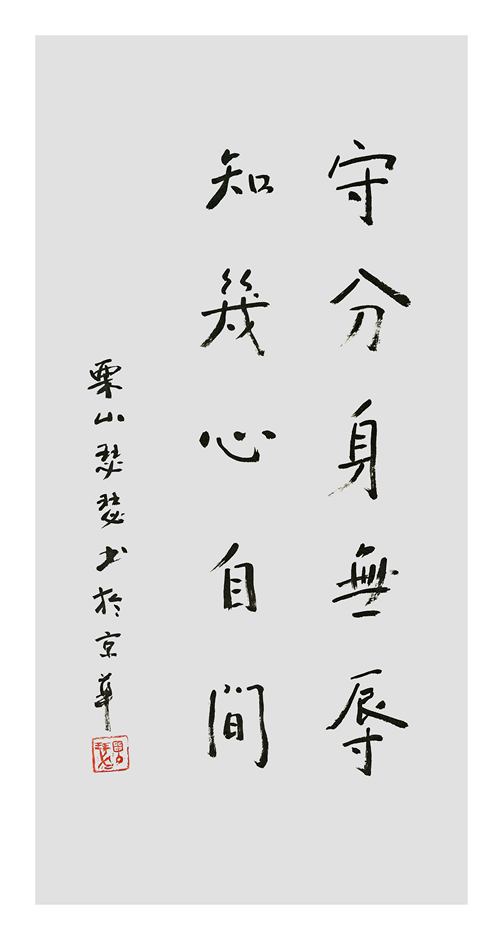 守分身無辱
知幾心自間
栗山瑟瑟书於京華